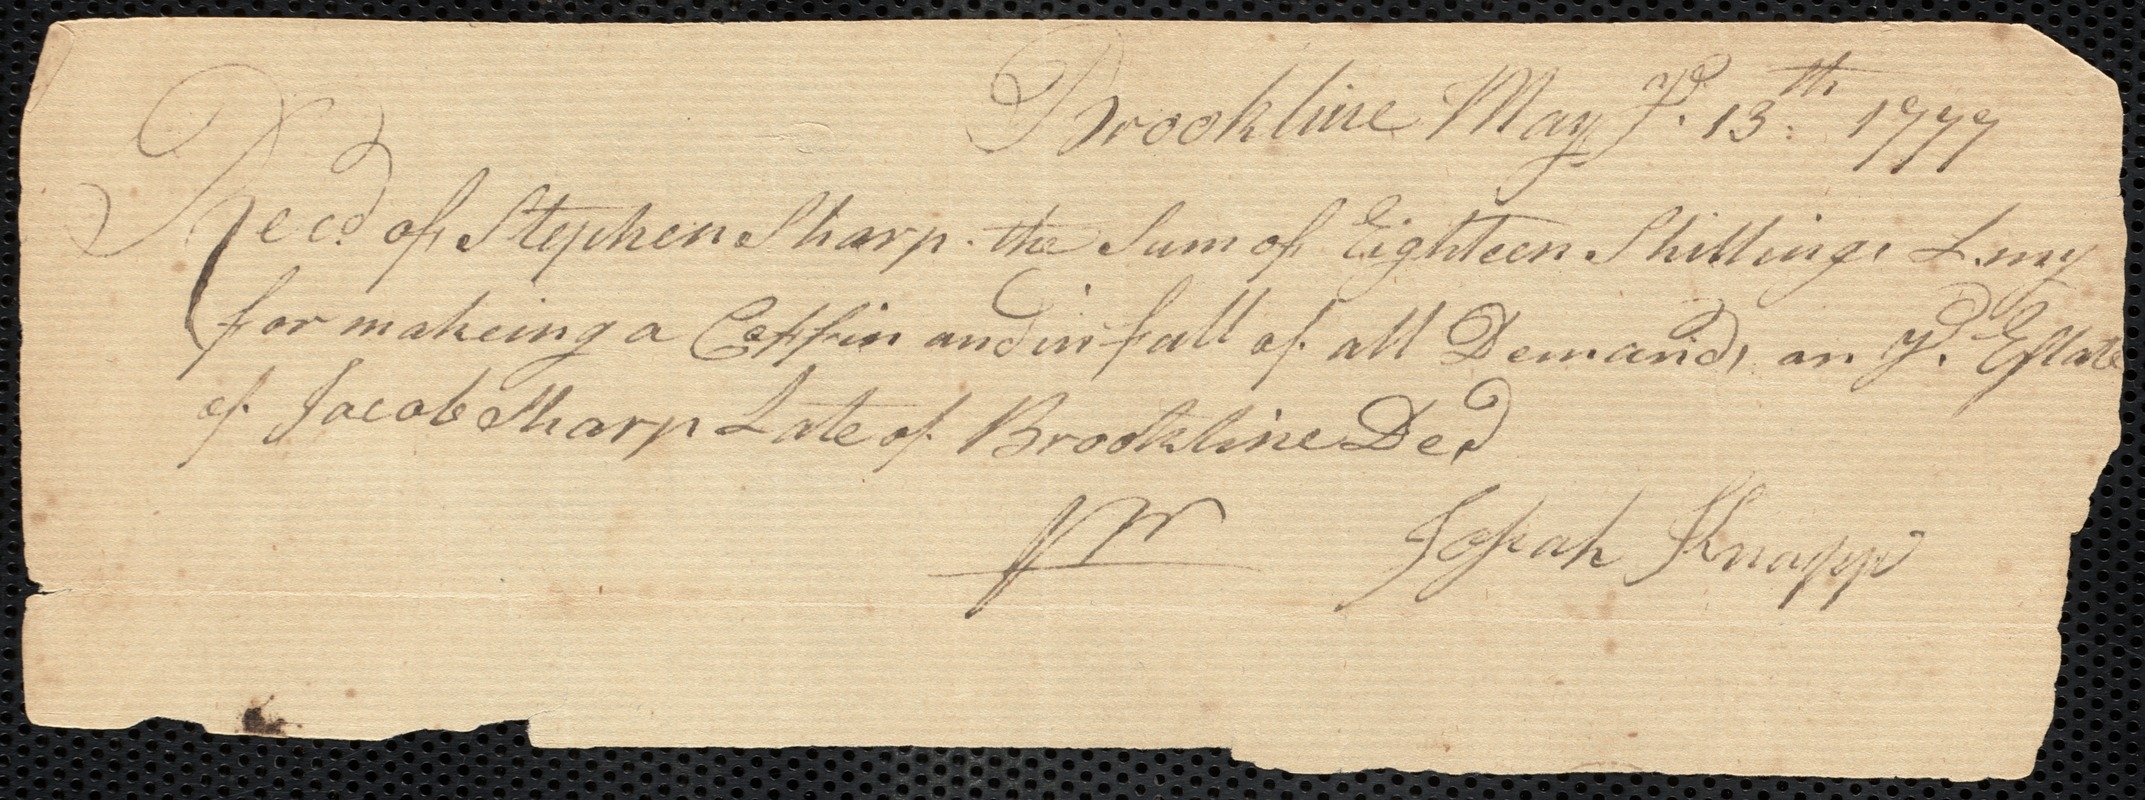 Brookline May ye. 13th: 1777
Recd of Stephen Sharp. the Sum of Eighteen Shillings L.my
for makeing a Coffin and in full of all Demands on ye. Estate
of Jacob Sharp Late of Brookline Decd
pr Josiah Knapp